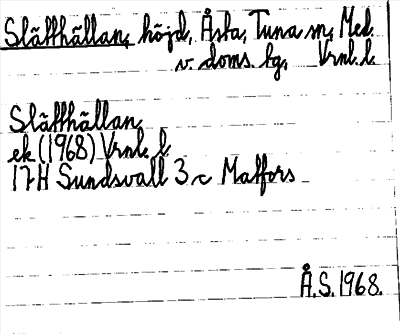 Slätthällan, höjd, Åsta, Tuna sn, Med.
v. doms. bg, Vrnl. l.
Slätthällan
ek (1968) Vrnl. l.
17H Sundsvall 3 c Matfors
Å.S. 1968.